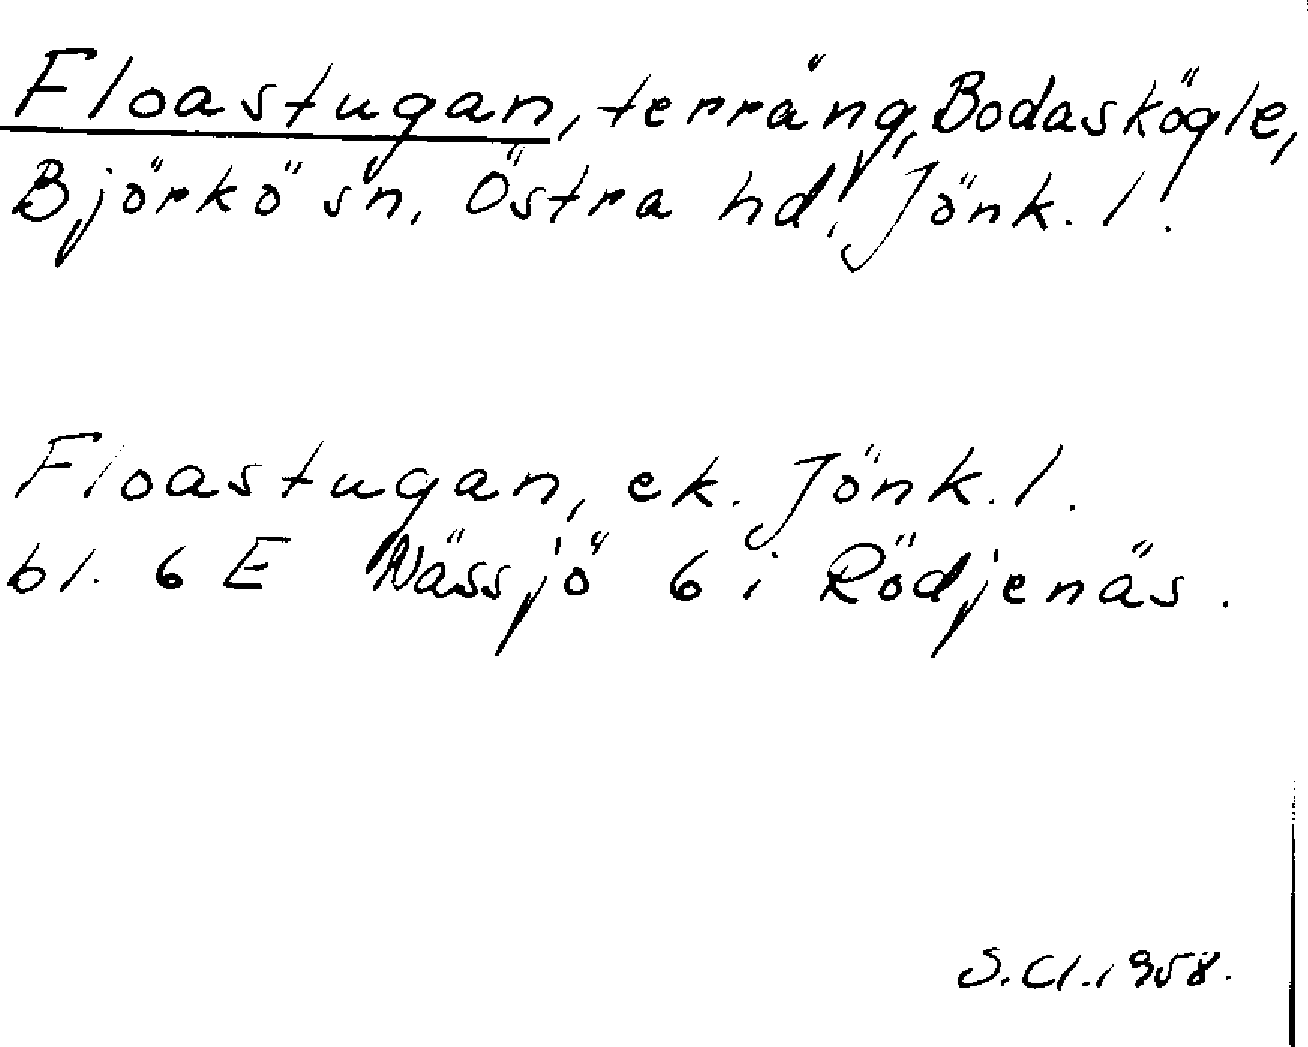 Floastugan, terräng, Bodaskögle,
Björkö sn, Östra hd, Jönk. l.
Floastugan, ek. Jönk. l.
bl. 6 E Nässjö 6 i Rödjenäs.
S. Cl. 1958.